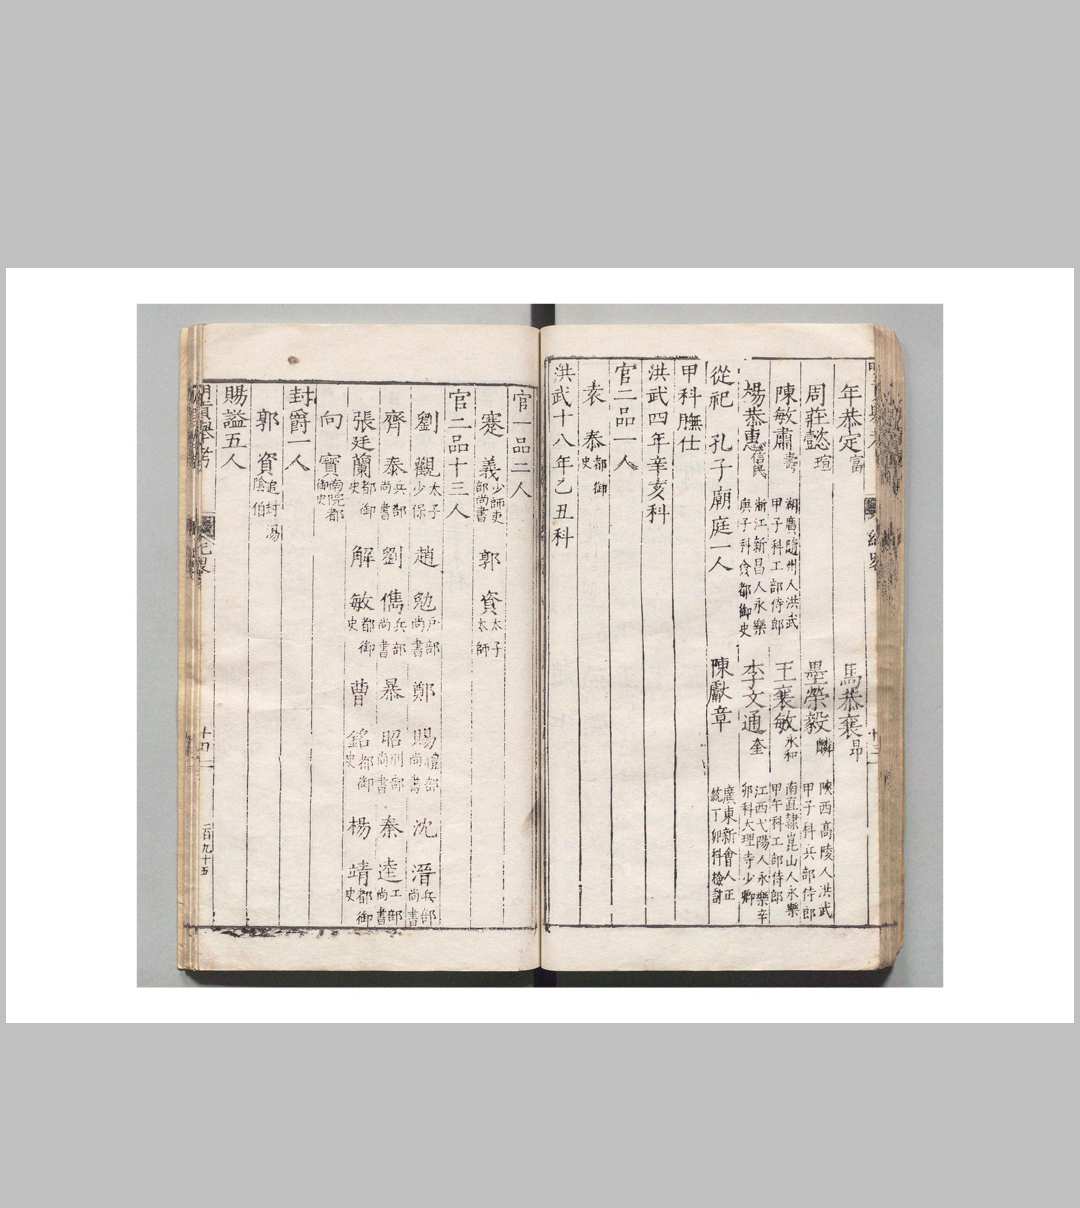 年恭定富 馬恭襄昂
陝西高陵人洪武甲子科兵部侍郎
周莊懿瑄 墨榮毅麟
陳敏肅壽 湖廣隨州人洪武甲子科工部侍郎 王襄敏永和 南直隸崑山人永樂甲午科工部侍郎
楊恭惠信民 浙江新昌人永樂庚子科僉都御史 李文通奎 江西弋陽人永樂辛卯科大理寺少卿
從祀 孔子廟庭一人 陳獻章 廣東新會人正統丁卯科檢討
甲科膴仕
洪武四年辛亥科
官二品一人
袁 泰都御史
洪武十八年乙丑科
官一品二人
蹇 義少師吏部尚書 郭 資太子太師
官二品十三人
劉 觀太子少保 趙 勉戶部尚書 鄭 賜禮部尚書 沈 溍兵部尚書
齊 泰兵部尚書 劉 儁兵部尚書 暴 昭刑部尚書 秦 逵工部尚書
張廷蘭都御史 解 敏都御史 曹 銘都御史 楊 靖都御史
向 寶南院都御史
封爵一人
郭 資追封湯陰伯
賜諡五人
明貢舉考 卷 十四 二百九十五